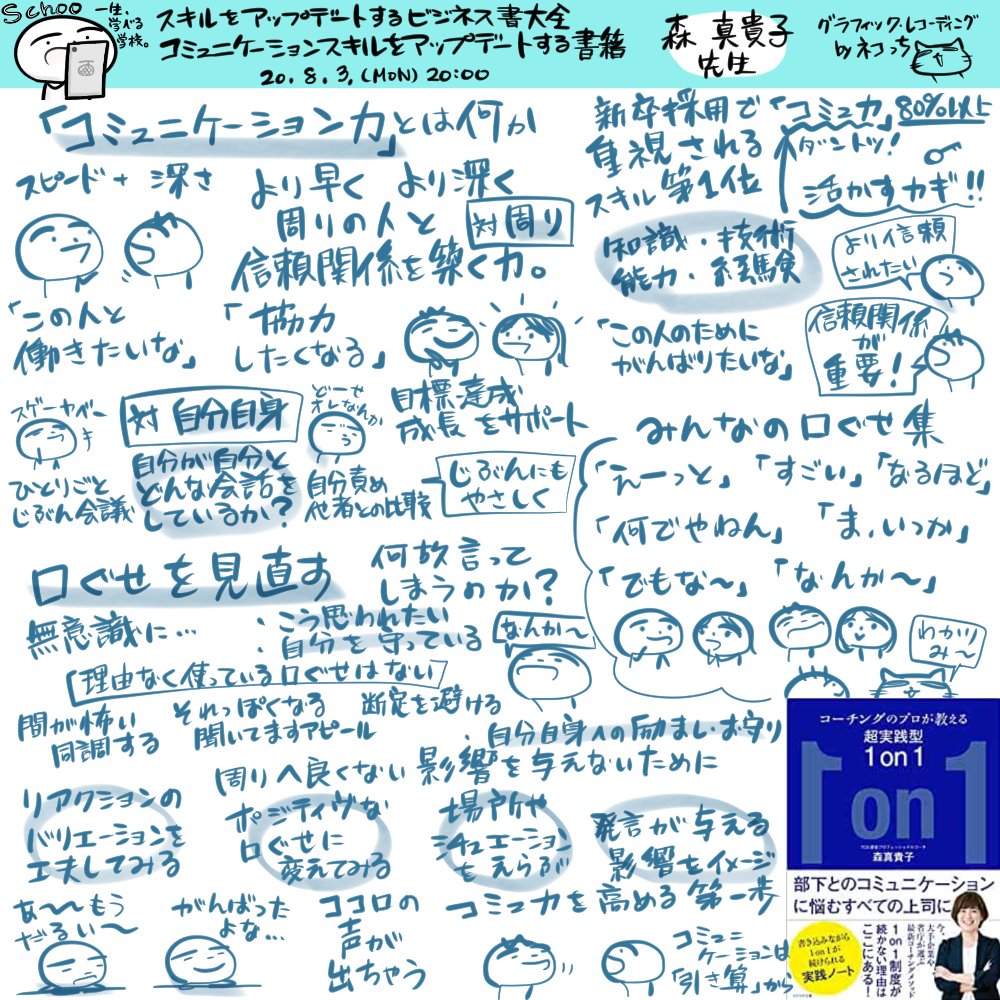 Schoo
一生、
学べる
学校。
スキルをアップデートするビジネス書大全
コミュニケーションスキルをアップデートする書籍
20.8.3.(MON) 20:00
森 真貴子
先生
グラフィックレコーディング
by ネコっち
「コミュニケーション力」とは何か
スピード + 深さ
より早く より深く
周りの人と
対 周り
信頼関係を築く力。
「この人と
働きたいな」
「協力
したくなる」
新卒採用で
重視される
スキル 第1位
「コミュ力」 80%以上
ダントツ!
活かすカギ!!
知識・技術
能力・経験
より信頼
されたい
「この人のために
がんばりたいな」
信頼関係
が
重要!
スゲーヤベー
対 自分自身
どーせ
オレなんか
目標達成
成長をサポート
ひとりごと
じぶん会議
自分が自分と
どんな会話を
しているか?
自分責め
他者との比較
じぶんにも
やさしく
みんなの口ぐせ集
「えーっと」「すごい」「なるほど」
「何でやねん」「ま、いっか」
「でもな〜」「なんか〜」
わかり
み〜
口ぐせを見直す
何故言って
しまうのか?
無意識に…
・こう思われたい
・自分を守っている
なんか〜
「理由なく使っている口ぐせはない
間が怖い
同調する
それっぽくなる
聞いてますアピール
断定を避ける
・自分自身への励まし・お守り
周りへ良くない影響を与えないために
リアクションの
バリエーションを
工夫してみる
ポジティヴな
口ぐせに
変えてみる
場所や
シチュエーション
をえらぶ
発言が与える
影響をイメージ
あ〜〜もう
だるい〜
がんばった
よな…
ココロの
声が
出ちゃう
コミュ力を高める第一歩
コミュニ
ケーションは
「引き算」から
コーチングのプロが教える
超実践型
1 on 1
1 on 1
森真貴子
部下とのコミュニケーション
に悩むすべての上司に
書き込みながら
1on1が
続けられる
実践ノート
今、
大手企業や
省庁が選ぶ
最新コーチングメソッド
1on1制度が
続かない理由は
ここにある!